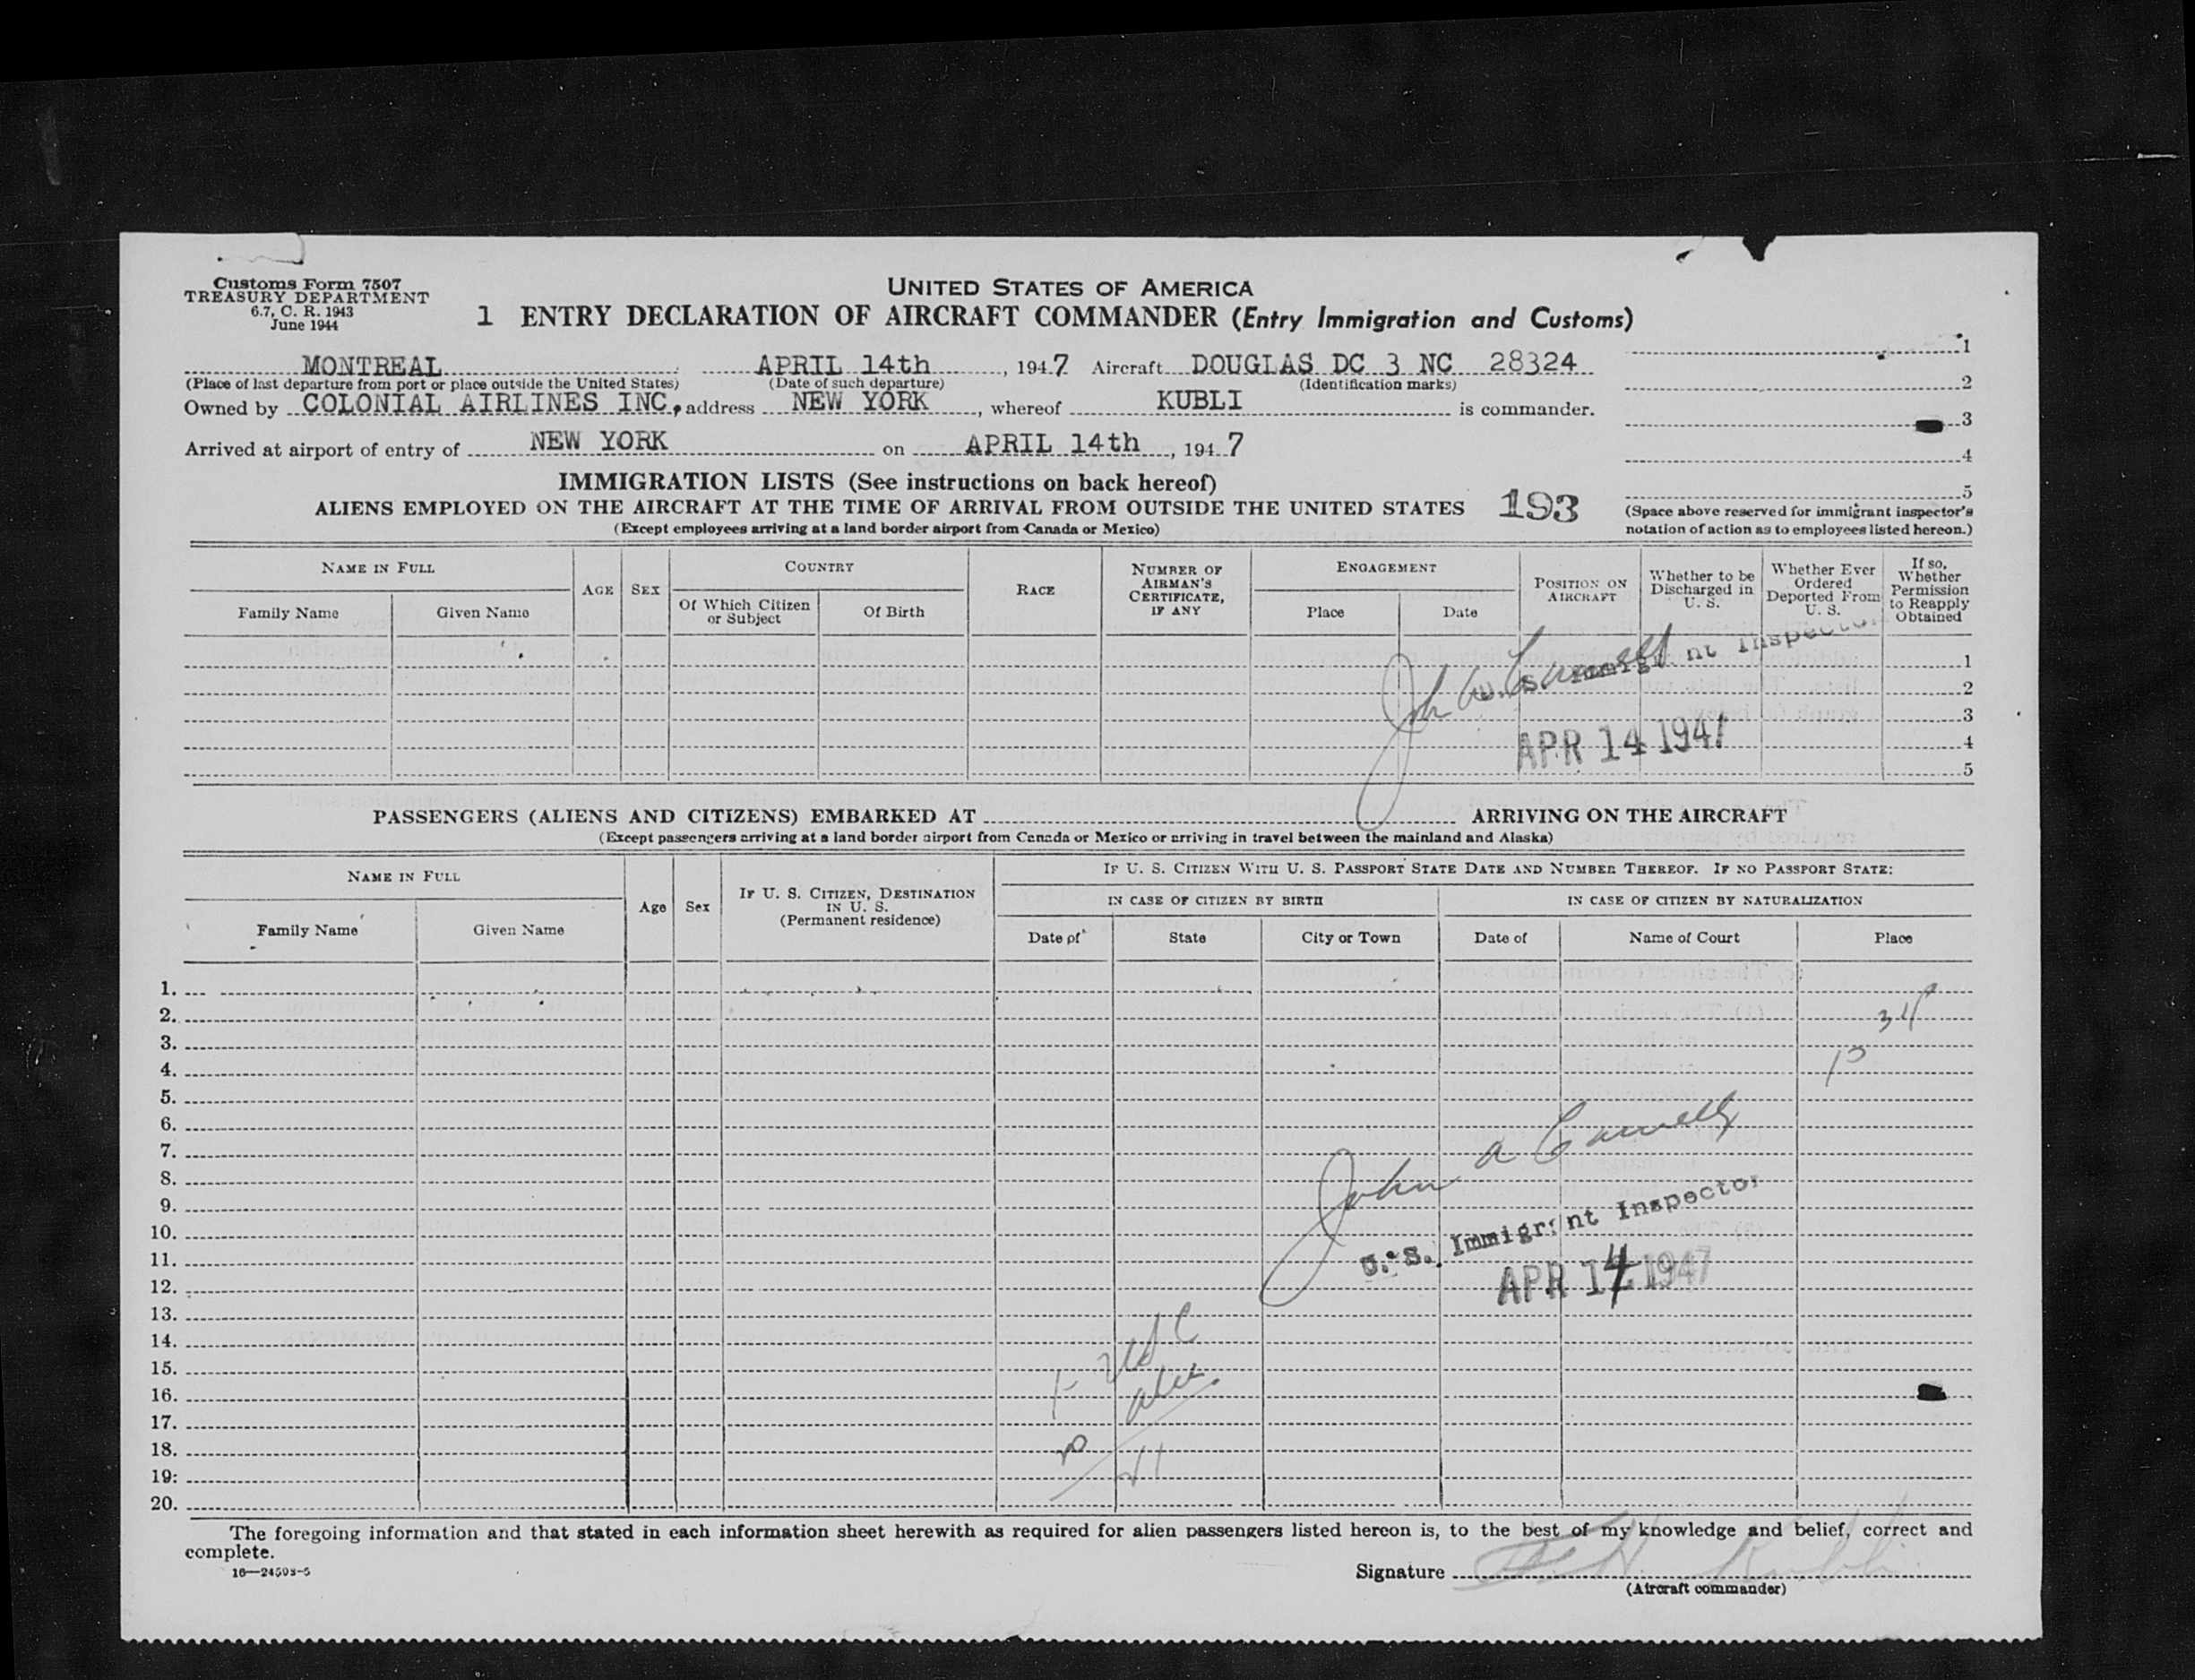 Customs Form 7507
TREASURY DEPARTMENT
6.7, C. R. 1943
June 1944
UNITED STATES OF AMERICA
1 ENTRY DECLARATION OF AIRCRAFT COMMANDER (Entry Immigration and Customs)
MONTREAL APRIL 14th, 1947 Aircraft DOUGLAS DC 3 NC 28324
(Place of last departure from port or place outside the United States) (Date of such departure) (Identification marks)
Owned by COLONIAL AIRLINES INC, address NEW YORK, whereof KUBLI is commander.
Arrived at airport of entry of NEW YORK on APRIL 14th, 1947
1
2
3
4
5
(Space above reserved for immigrant inspector's
notation of action as to employees listed hereon.)
IMMIGRATION LISTS (See instructions on back hereof)
ALIENS EMPLOYED ON THE AIRCRAFT AT THE TIME OF ARRIVAL FROM OUTSIDE THE UNITED STATES 193
(Except employees arriving at a land border airport from Canada or Mexico)
NAME IN FULL
Family Name Given Name
AGE
SEX
COUNTRY
Of Which Citizen or Subject
Of Birth
RACE
NUMBER OF AIRMAN'S CERTIFICATE, IF ANY
ENGAGEMENT
Place Date
POSITION ON AIRCRAFT
Whether to be Discharged in U. S.
Whether Ever Ordered Deported From U. S.
If so, Whether Permission to Reapply Obtained
1
2
3
4
5
U. S. Immigrant Inspector
APR 14 1947
PASSENGERS (ALIENS AND CITIZENS) EMBARKED AT ARRIVING ON THE AIRCRAFT
(Except passengers arriving at a land border airport from Canada or Mexico or arriving in travel between the mainland and Alaska)
NAME IN FULL
Family Name Given Name
Age
Sex
IF U. S. CITIZEN, DESTINATION IN U. S.
(Permanent residence)
IF U. S. CITIZEN WITH U. S. PASSPORT STATE DATE AND NUMBER THEREOF. IF NO PASSPORT STATE:
IN CASE OF CITIZEN BY BIRTH IN CASE OF CITIZEN BY NATURALIZATION
Date of State City or Town Date of Name of Court Place
1.
2.
3.
4.
5.
6.
7.
8.
9.
10.
11.
12.
13.
14.
15.
16.
17.
18.
19.
20.
John A
U. S. Immigrant Inspector
APR 14 1947
The foregoing information and that stated in each information sheet herewith as required for alien passengers listed hereon is, to the best of my knowledge and belief, correct and
complete.
16—24593-5
Signature H. Kubli
(Aircraft commander)